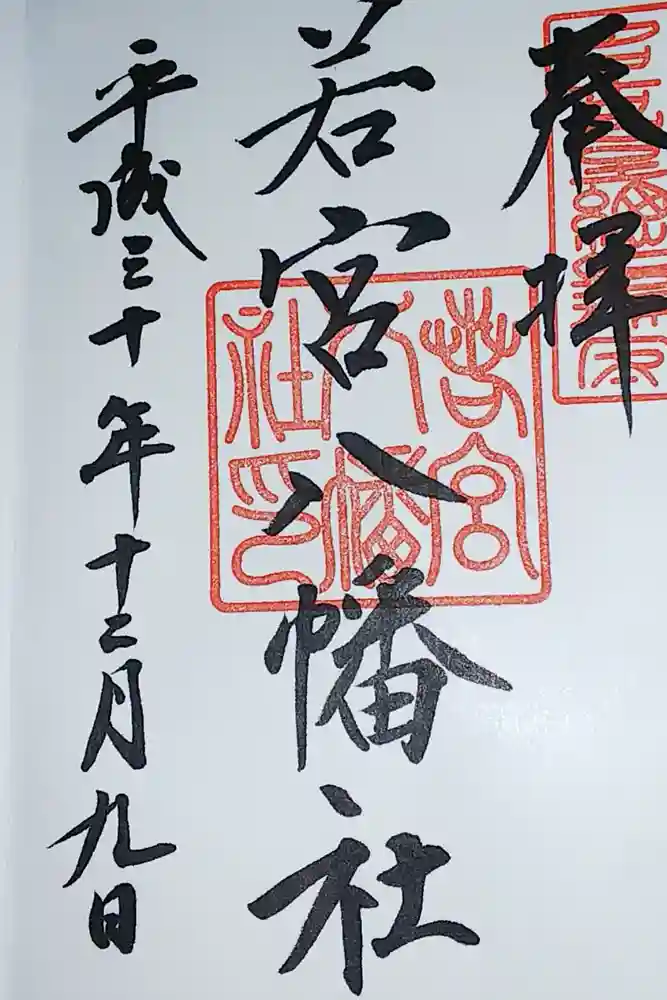 奉拝
若宮八幡社
平成三十年十二月九日
若宮
八幡
社印